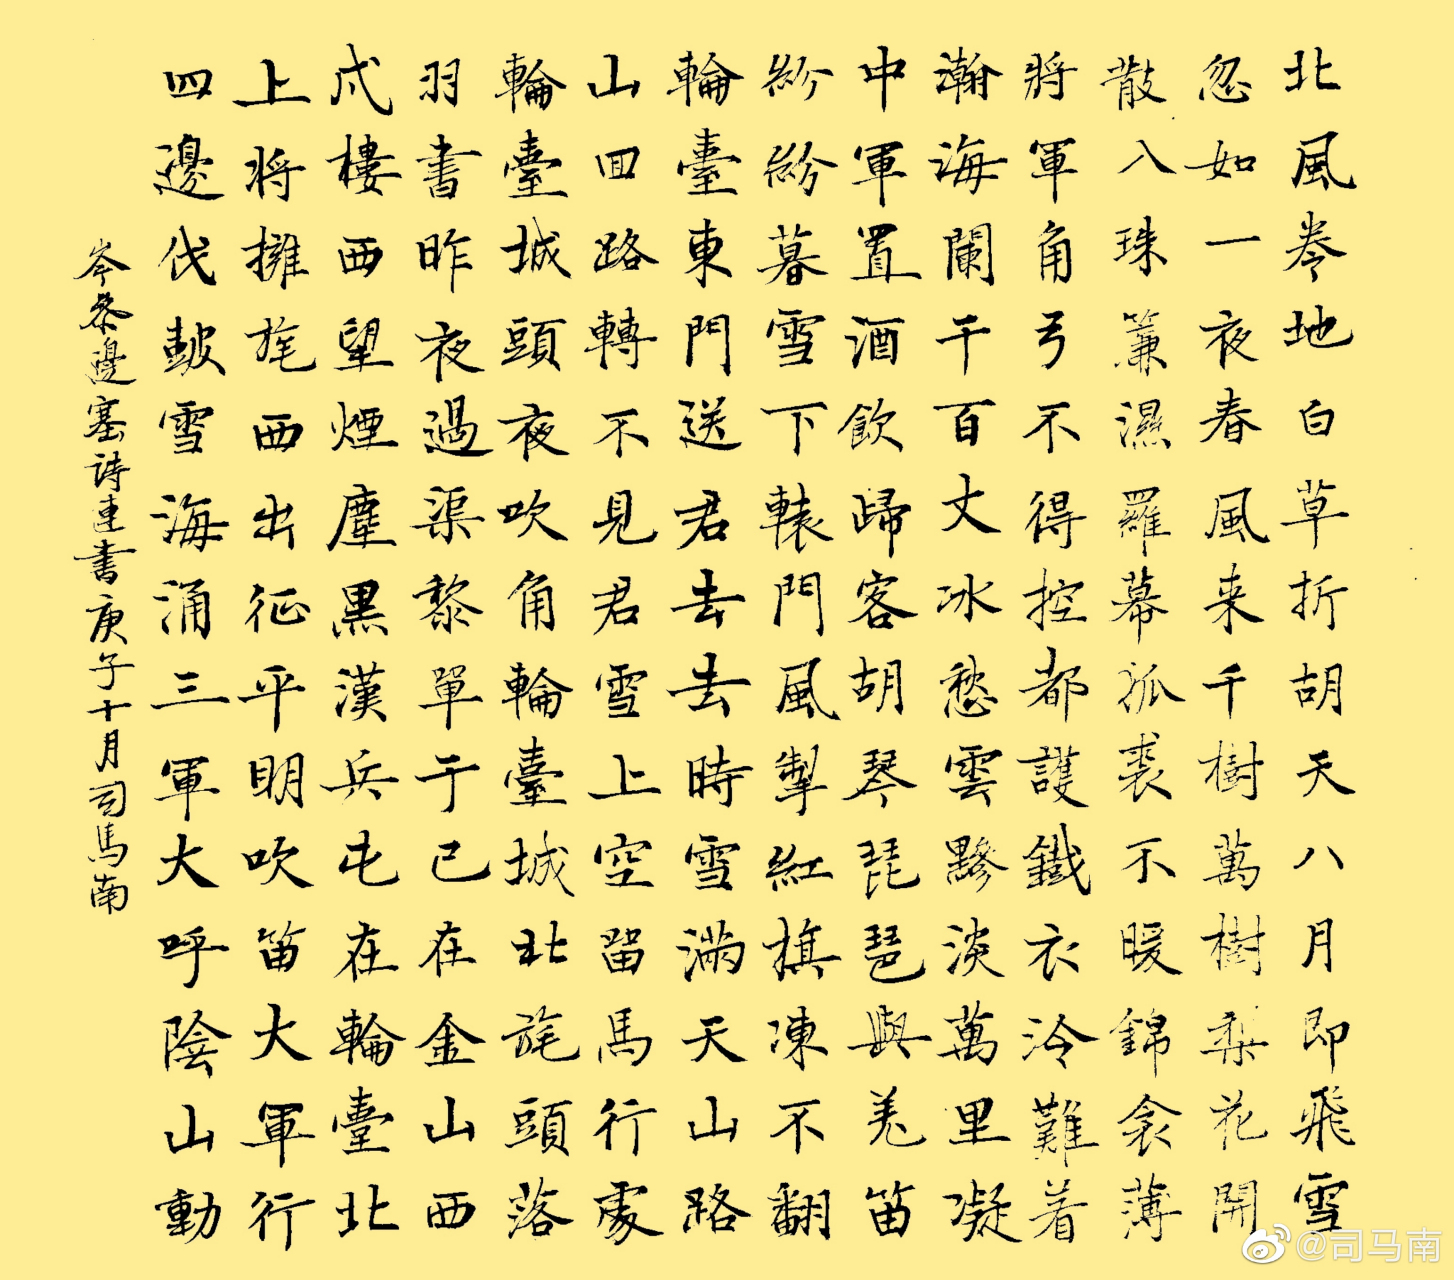 北風卷地白草折胡天八月即飛雪
忽如一夜春風来千樹萬樹梨花開
散入珠簾濕羅幕狐裘不暖錦衾薄
將軍角弓不得控都護鐵衣冷難着
瀚海闌干百丈冰愁雲黲淡萬里凝
中軍置酒飲歸客胡琴琵琶與羌笛
紛紛暮雪下轅門風掣紅旗凍不翻
輪臺東門送君去去時雪滿天山路
山回路轉不見君雪上空留馬行處
輪臺城頭夜吹角輪臺城北旄頭落
羽書昨夜過渠黎單于已在金山西
戍樓西望煙塵黑漢兵屯在輪臺北
上將擁旄西出征平明吹笛大軍行
四邊伐鼓雪海涌三軍大呼陰山動
岑參邊塞詩連書庚子十月司馬南
@司马南